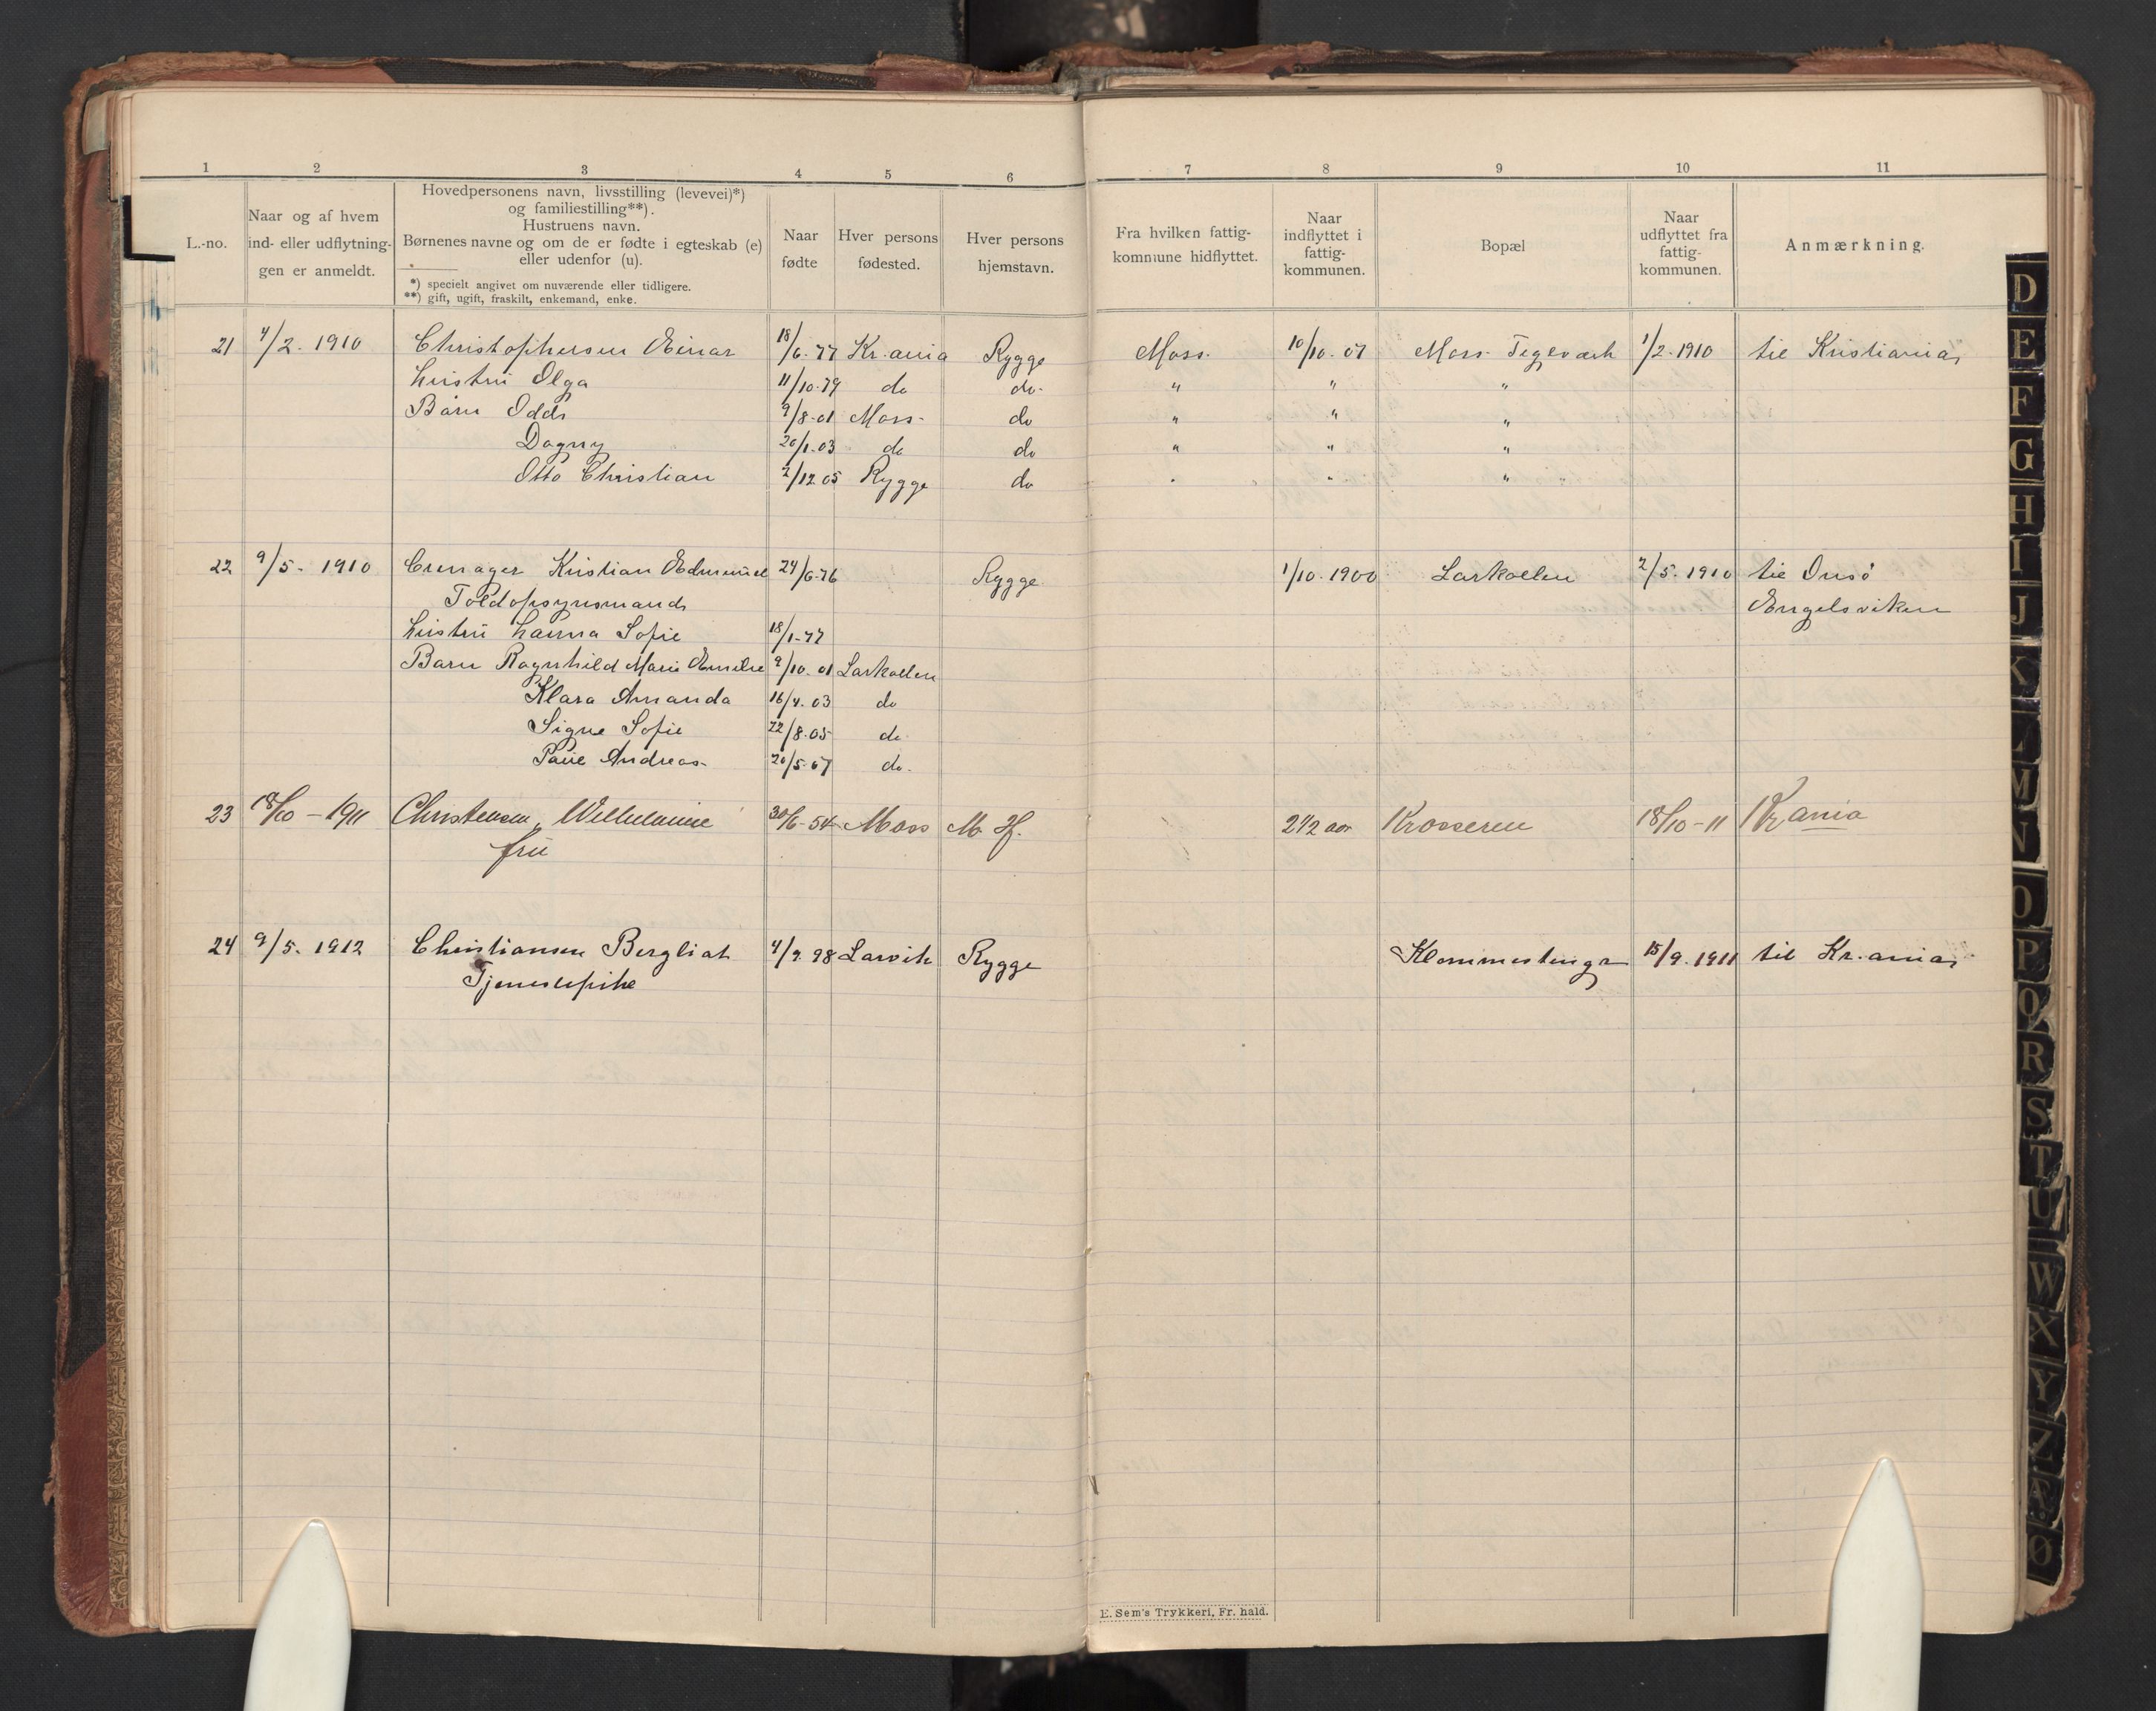 1 2 3 4 5 6 7 8 9 10 11
L.-no.
Naar og af hvem
ind- eller udflytnin-
gen er anmeldt.
Hovedpersonens navn, livsstilling (levevei)*)
og familiestilling**).
Hustruens navn.
Børnenes navne og om de er fødte i egteskab (e)
eller udenfor (u).
*) specielt angivet om nuværende eller tidligere.
**) gift, ugift, fraskilt, enkemand, enke.
Naar
fødte
Hver persons
fødested.
Hver persons
hjemstavn.
Fra hvilken fattig-
kommune hidflyttet.
Naar
indflyttet i
fattig-
kommunen.
Bopæl
Naar
udflyttet fra
fattig-
kommunen.
Anmærkning.
21 4/2. 1910 Christophersen Einar 18/6. 77 Kr.ania Rygge Moss. 10/10. 07 Moss Teglværk 1/2. 1910 til Kristiania
Hustru Olga 11/10. 79 do do. " " "
Børn Odd 9/8-01 Moss. do " " "
Dagny 20/1. 03 do do " " "
Otto Christian 2/12 05 Rygge do " " " "
22 9/5. 1910 Kristian 24/6-76 Rygge 1/10. 1900 Larkollen 2/5. 1910 til Onsö
Toldopsynsmand Engelsviken
Hustru Hanna Sofie 18/1-77
Barn Ragnhild Marie Emilie 9/10. 01 Larkollen
Klara Amanda 16/4. 03 do
Signe Sofie 22/8. 05 do
Paul Andreas 20/5. 07 do.
23 18/10 - 1911 Christensen, Wilhelmine 30/6-54 Moss M. Hf. 2 1/2 aar Krosseren 18/10-11 Kr ania
fru
24 9/5. 1912 Christiansen Bergliot 4/9. 98 Larvik Rygge 15/9. 1911 til Kr.ania
Tjenestepike
E. Sem's Trykkeri, Fr. hald.
D
E
F
G
H
I
J
K
L
M
N
O
P
Q
R
S
T
U
W
X
Y
Z
Æ
Ø